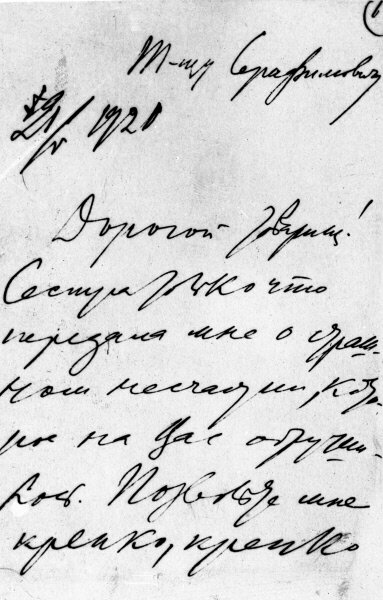 Т-щу Серафимовичу
21/V 1920
Дорогой товарищ!
Сестра только что
передала мне о страш-
ном несчастьи, кото-
рое на Вас обруши-
лось. Позвольте мне
крепко, крепко